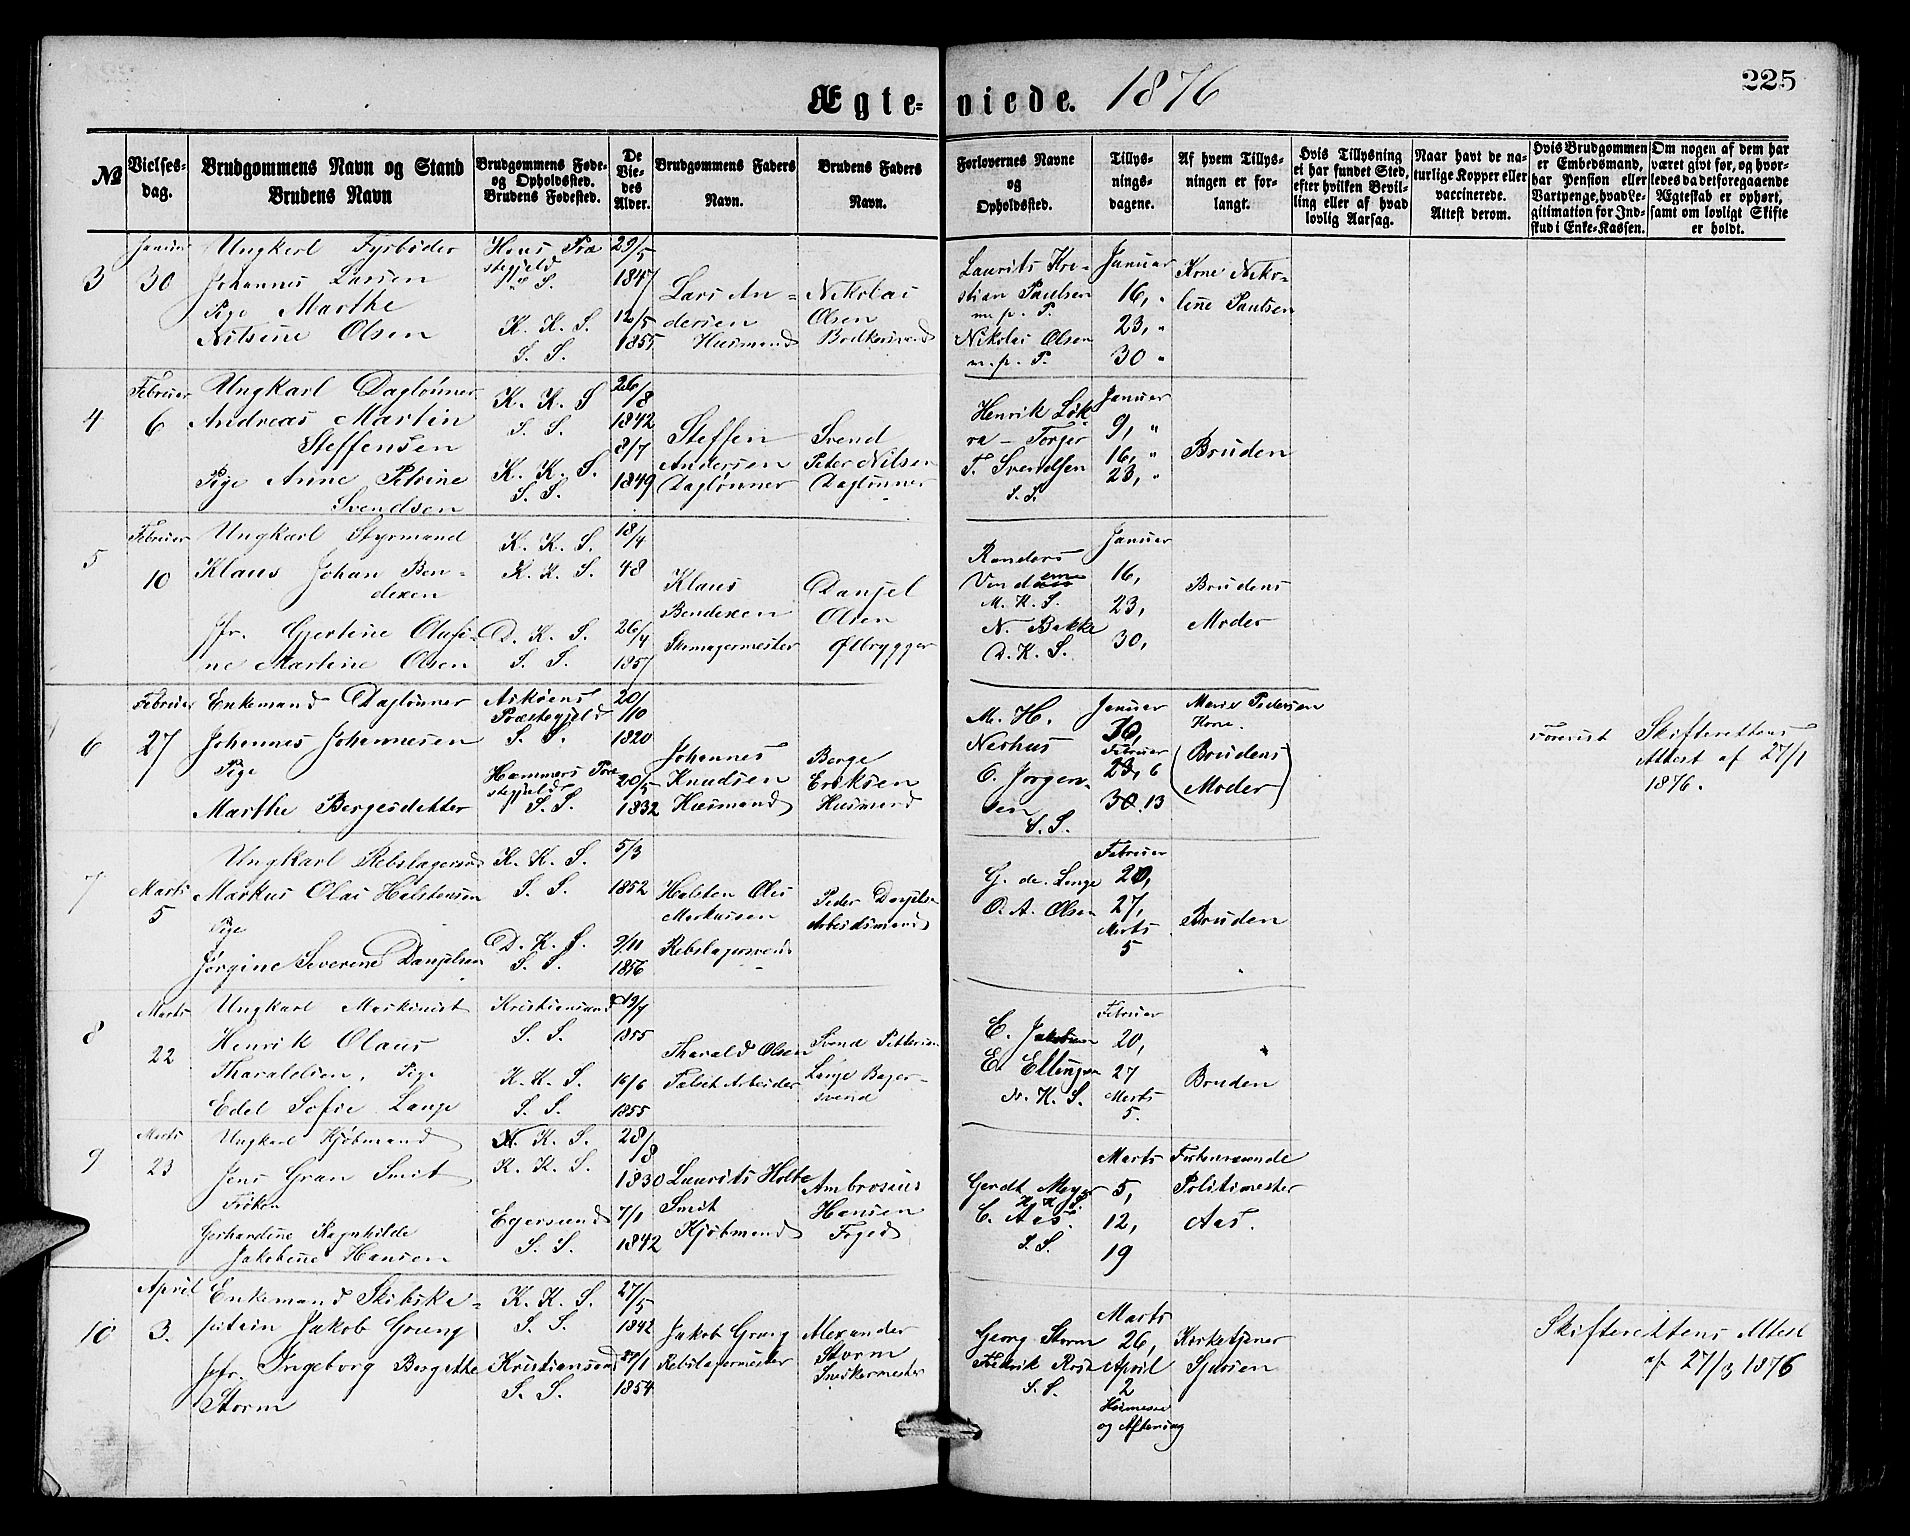 Ægte-viede. 1876
225
№
Vielses-
dag.
Brudgommens Navn og Stand
Brudens Navn
Brudgommens Føde-
og Opholdssted.
Brudens Fødested.
De
Vie-
des
Alder.
Brudgommens Faders
Navn.
Brudens Faders
Navn.
Forlovernes Navne
og
Opholdssted.
Tillys-
nings-
dagene.
Af hvem Tillys-
ningen er for-
langt.
Hvis Tillysning
ei har fundet Sted,
efter hvilken Bevil-
ling eller af hvad
lovlig Aarsag.
Naar havt de na-
turlige Kopper eller
vaccinerede.
Attest derom.
Hvis Brudgommen
er Embedsmand,
har Pension eller
Vartpenge, hvad Le-
gitimation for Ind-
skud i Enke-Kassen.
Om nogen af dem har
været givt før, og hvor-
ledes da det foregaaende
Ægteskab er ophørt,
samt om lovligt Skifte
er holdt.
3
Januar
30
Ungkarl Fyrbøder
Johannes Larsen
Pige Marthe
Nilsine Olsen
Hous Præ
stegjeld
S. S.
K. K. S.
S. S.
29/5
1847
12/5
1855
Lars An-
dersen
Husmand
Nikolai
Olsen
Bødkersvend
Laurits Kri-
stian Paulsen
m. p. P.
Nikolai Olsen
m. p. P.
Januar
16, "
23, "
30 "
Kone Niko-
line Paulsen
4
Februar
6
Ungkarl Daglønner
Andreas Martin
Steffensen
Pige Anne Petrine
Svendsen
K. K. S
S. S.
K. K. S.
S. S.
26/8
1842
8/7
1849
Steffen
Andersen
Daglønner
Svend
Peter Nilsen
Daglønner
Henrik Løk
ra - Torger
T. Svendsen
S. S.
Januar
9, "
16, "
23, "
Bruden
5
Februar
10
Ungkarl Styrmand
Klaus Johan Ben-
dixen
Jfr. Gjertine Olufi-
ne Martine Olsen
K. K. S.
K. K. S.
D. K. S.
S. S.
18/4
48
26/4
1857
Klaus
Bendixen
Skomagermester
Danjel
Olsen
Ølbrygger
Randers
M. K. S.
N. Bakke
D. K. S.
Januar
16,
23,
30,
Brudens
Moder
6
Februar
27
Enkemand Daglønner
Johannes Johannesen
Pige
Marthe Bergesdatter
Askøens
Præstegjeld
S. S.
Hammers Præ
stegjeld
S. S.
20/10
1820
20/5
1832
Johannes
Knudsen
Husmand
Berge
Eriksen
Husmand
M. H.
Neshus
O. Jørgen-
sen
S. S.
Januar
30,
Februar
23, 6
30. 13
Marie Pedersen
Kone.
(Brudens
Moder)
Skifterettens
Attest af 27/1
1876.
7
Marts
5
Ungkarl Rebslagersvend
Markus Olai Halstensen
Pige
Jørgine Severine Danjelsen
K. K. S.
S. S.
D. K. S.
S. S.
5/3
1852
9/11
1856
Halsten Olai
Markussen
Rebslagersvend
Peder Danjelsen
Arbeidsmand
G. de. Lange
O. A. Olsen
Februar
20,
27,
Marts
5
Bruden
8
Marts
22
Ungkarl Maskinist
Henrik Olaus
Tharaldsen, Pige
Edel Sofie Lange
Kristiansand
S. S.
K. K. S.
S. S.
1855
16/6
1855
Tharald Olsen
Fabrik Arbeider
Svend Pettersen
Lange Bager-
svend
E. Jakobsen
E. Ellingsen
N. K. S.
Februar
20,
27
Marts
5.
Bruden
9
Marts
23
Ungkarl Kjøbmand
Jens Gran Smit
Frøken
Gerhardine Ragnhilde
Jakobine Hansen
N. K. S.
K. K. S.
Egersund
S. S.
28/8
1830
7/1
1842
Laurits Holte
Smit
Kjøbmand
Ambrosius
Hansen
Foged
Gerdt Meyer
K. K. S.
C. Aas.
S. S.
Marts
5,
12,
19
Politimester
Aas.
10
April
3.
Enkemand Skibska-
pitain Jakob Greng
Jfr. Ingeborg Bergitte
Storm
K. K. S.
S. S.
Kristiansund
S. S.
27/5
1842
1854
Jakob Greng
Rebslagermester
Alexander
Storm
Snedkermester
Georg Storm
Fredrik Rosn
S. S.
Marts
26,
April
2
Høimesse
og Aftensang
Kirketjener
Sjursen
Skifterettens Attest
af 27/3 1876